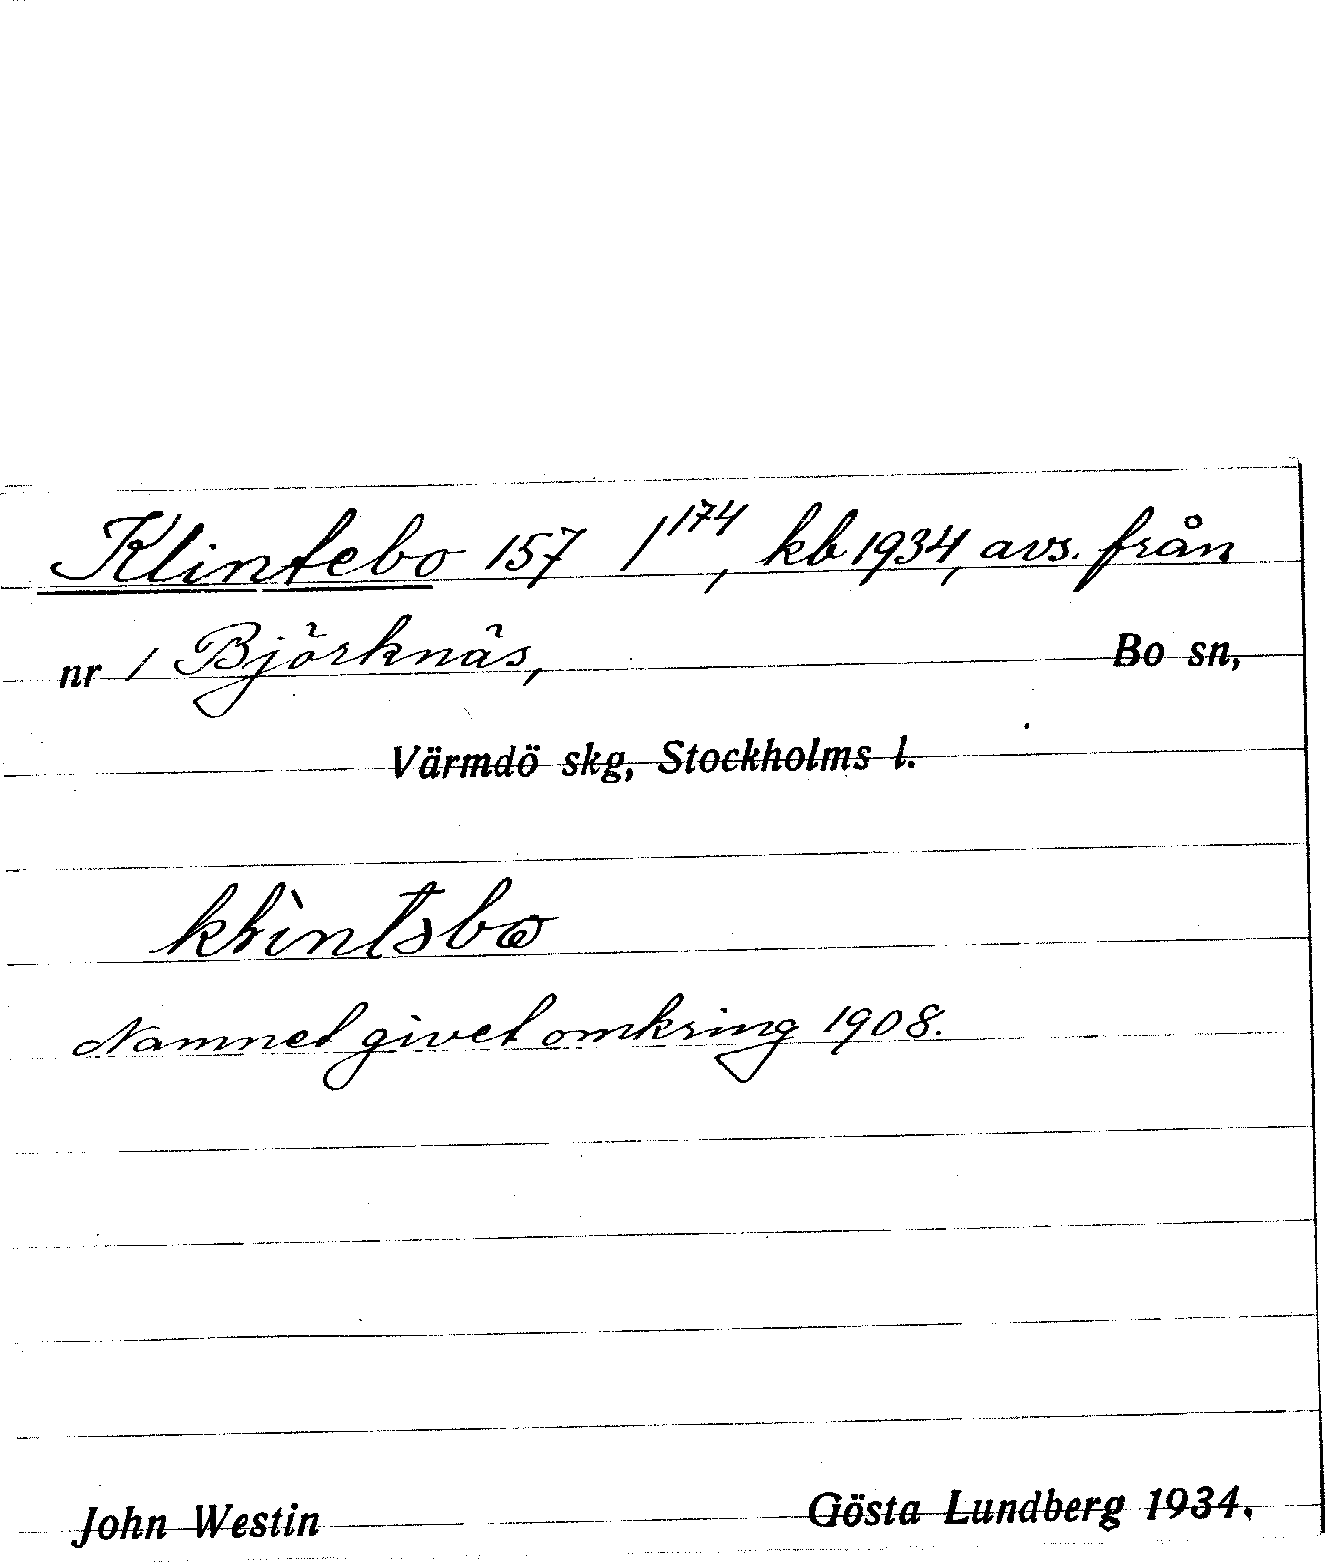 Klintebo 157 1¹⁷⁴, kb 1934, avs. från
nr 1 Björknäs, Bo sn,
Värmdö skg, Stockholms l.
Namnet givet omkring 1908.
John Westin Gösta Lundberg 1934.